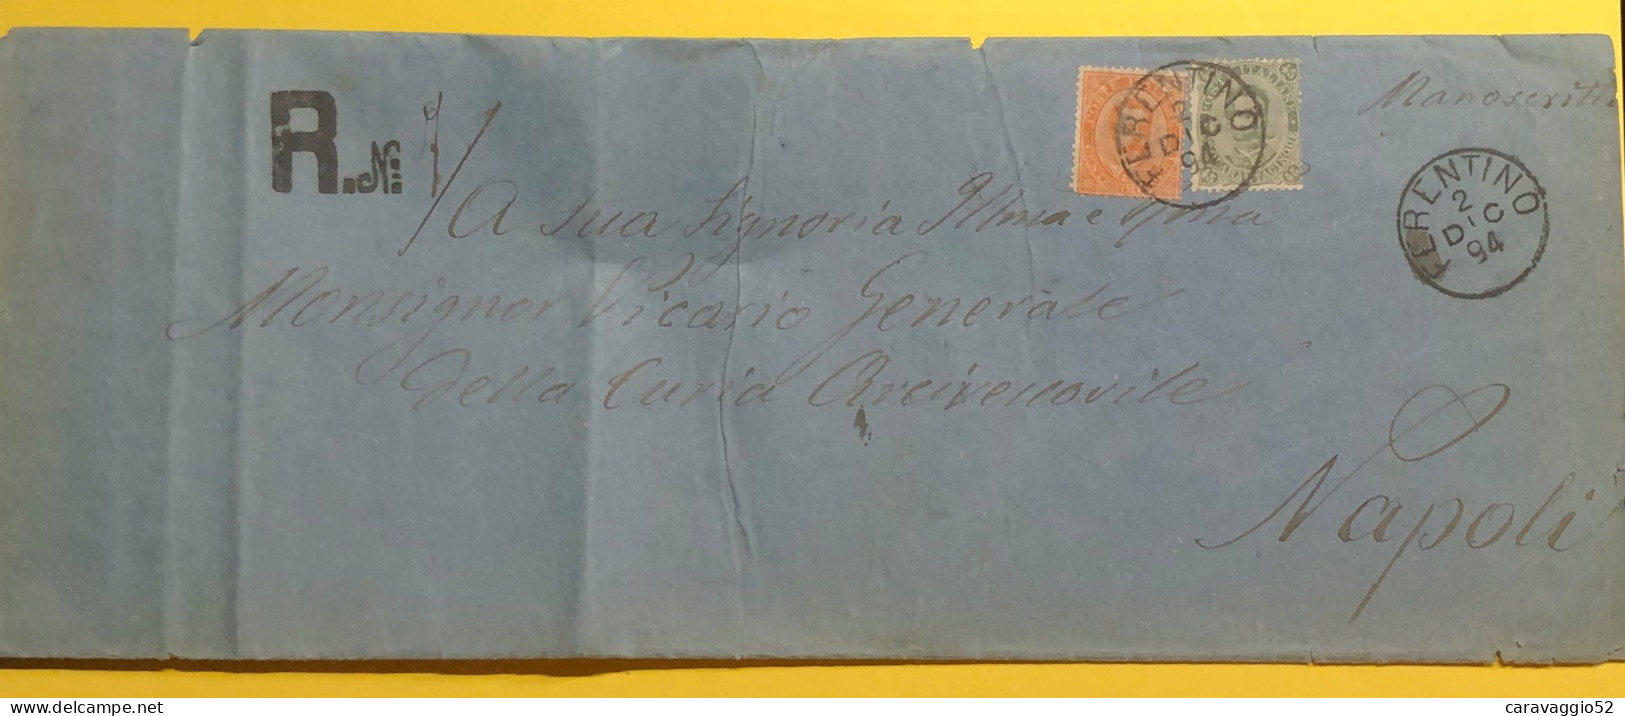 Manoscritti
FERENTINO
2
DIC
94
FERENTINO
2
DIC
94
R. No
A sua Signoria Illma e Rma
Monsignor Vicario Generale
della Curia Arcivescovile
Napoli
www.delcampe.net
caravaggio52